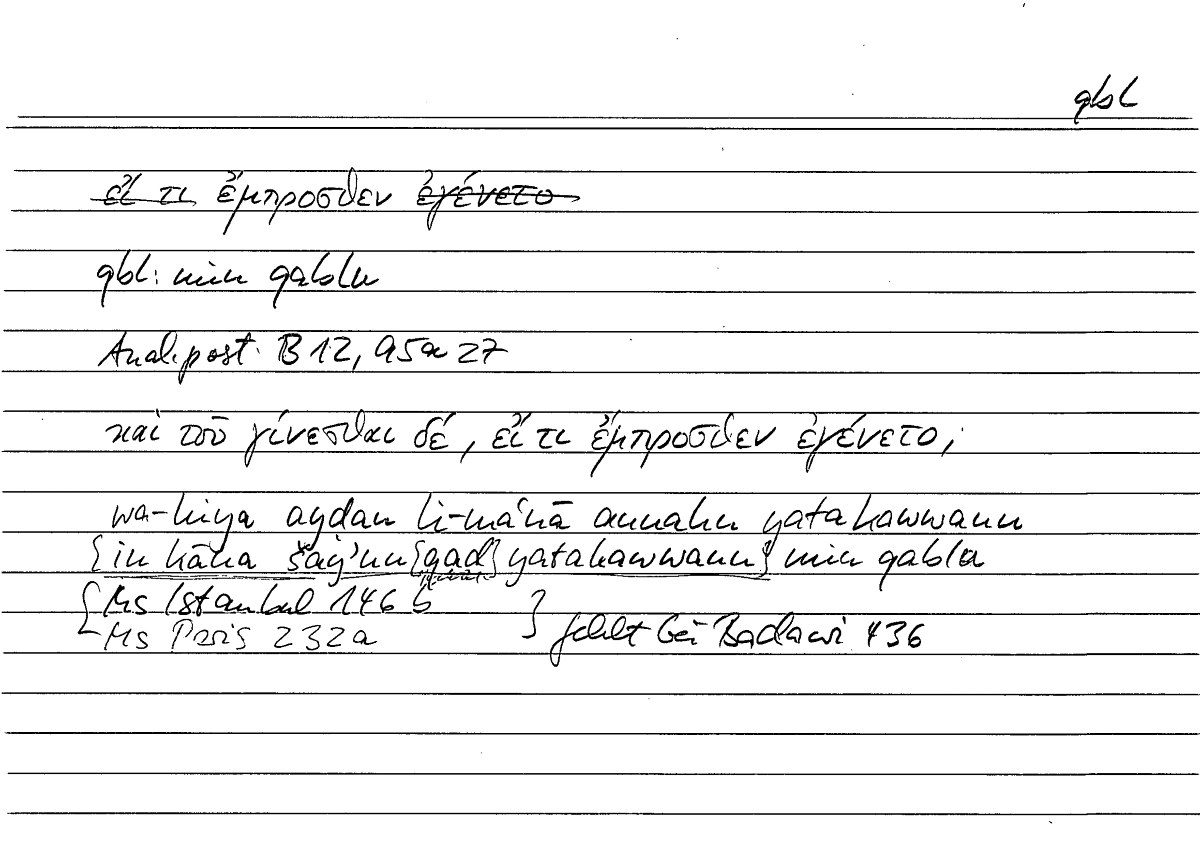 qbl
εἴ τι ἔμπροσθεν ἐγένετο
qbl: min qablu
Anal. post. B 12, 95a 27
καὶ τοῦ γίνεσθαι δέ, εἴ τι ἔμπροσθεν ἐγένετο;
wa-hiya ayḍan li-maʿnā annahu yatakawwanu
{in kāna šayʾnu {qad} yatakawwanu} min qabla
{Ms Istanbul 146 b }
Ms Paris 232a fehlt bei Badawi 436